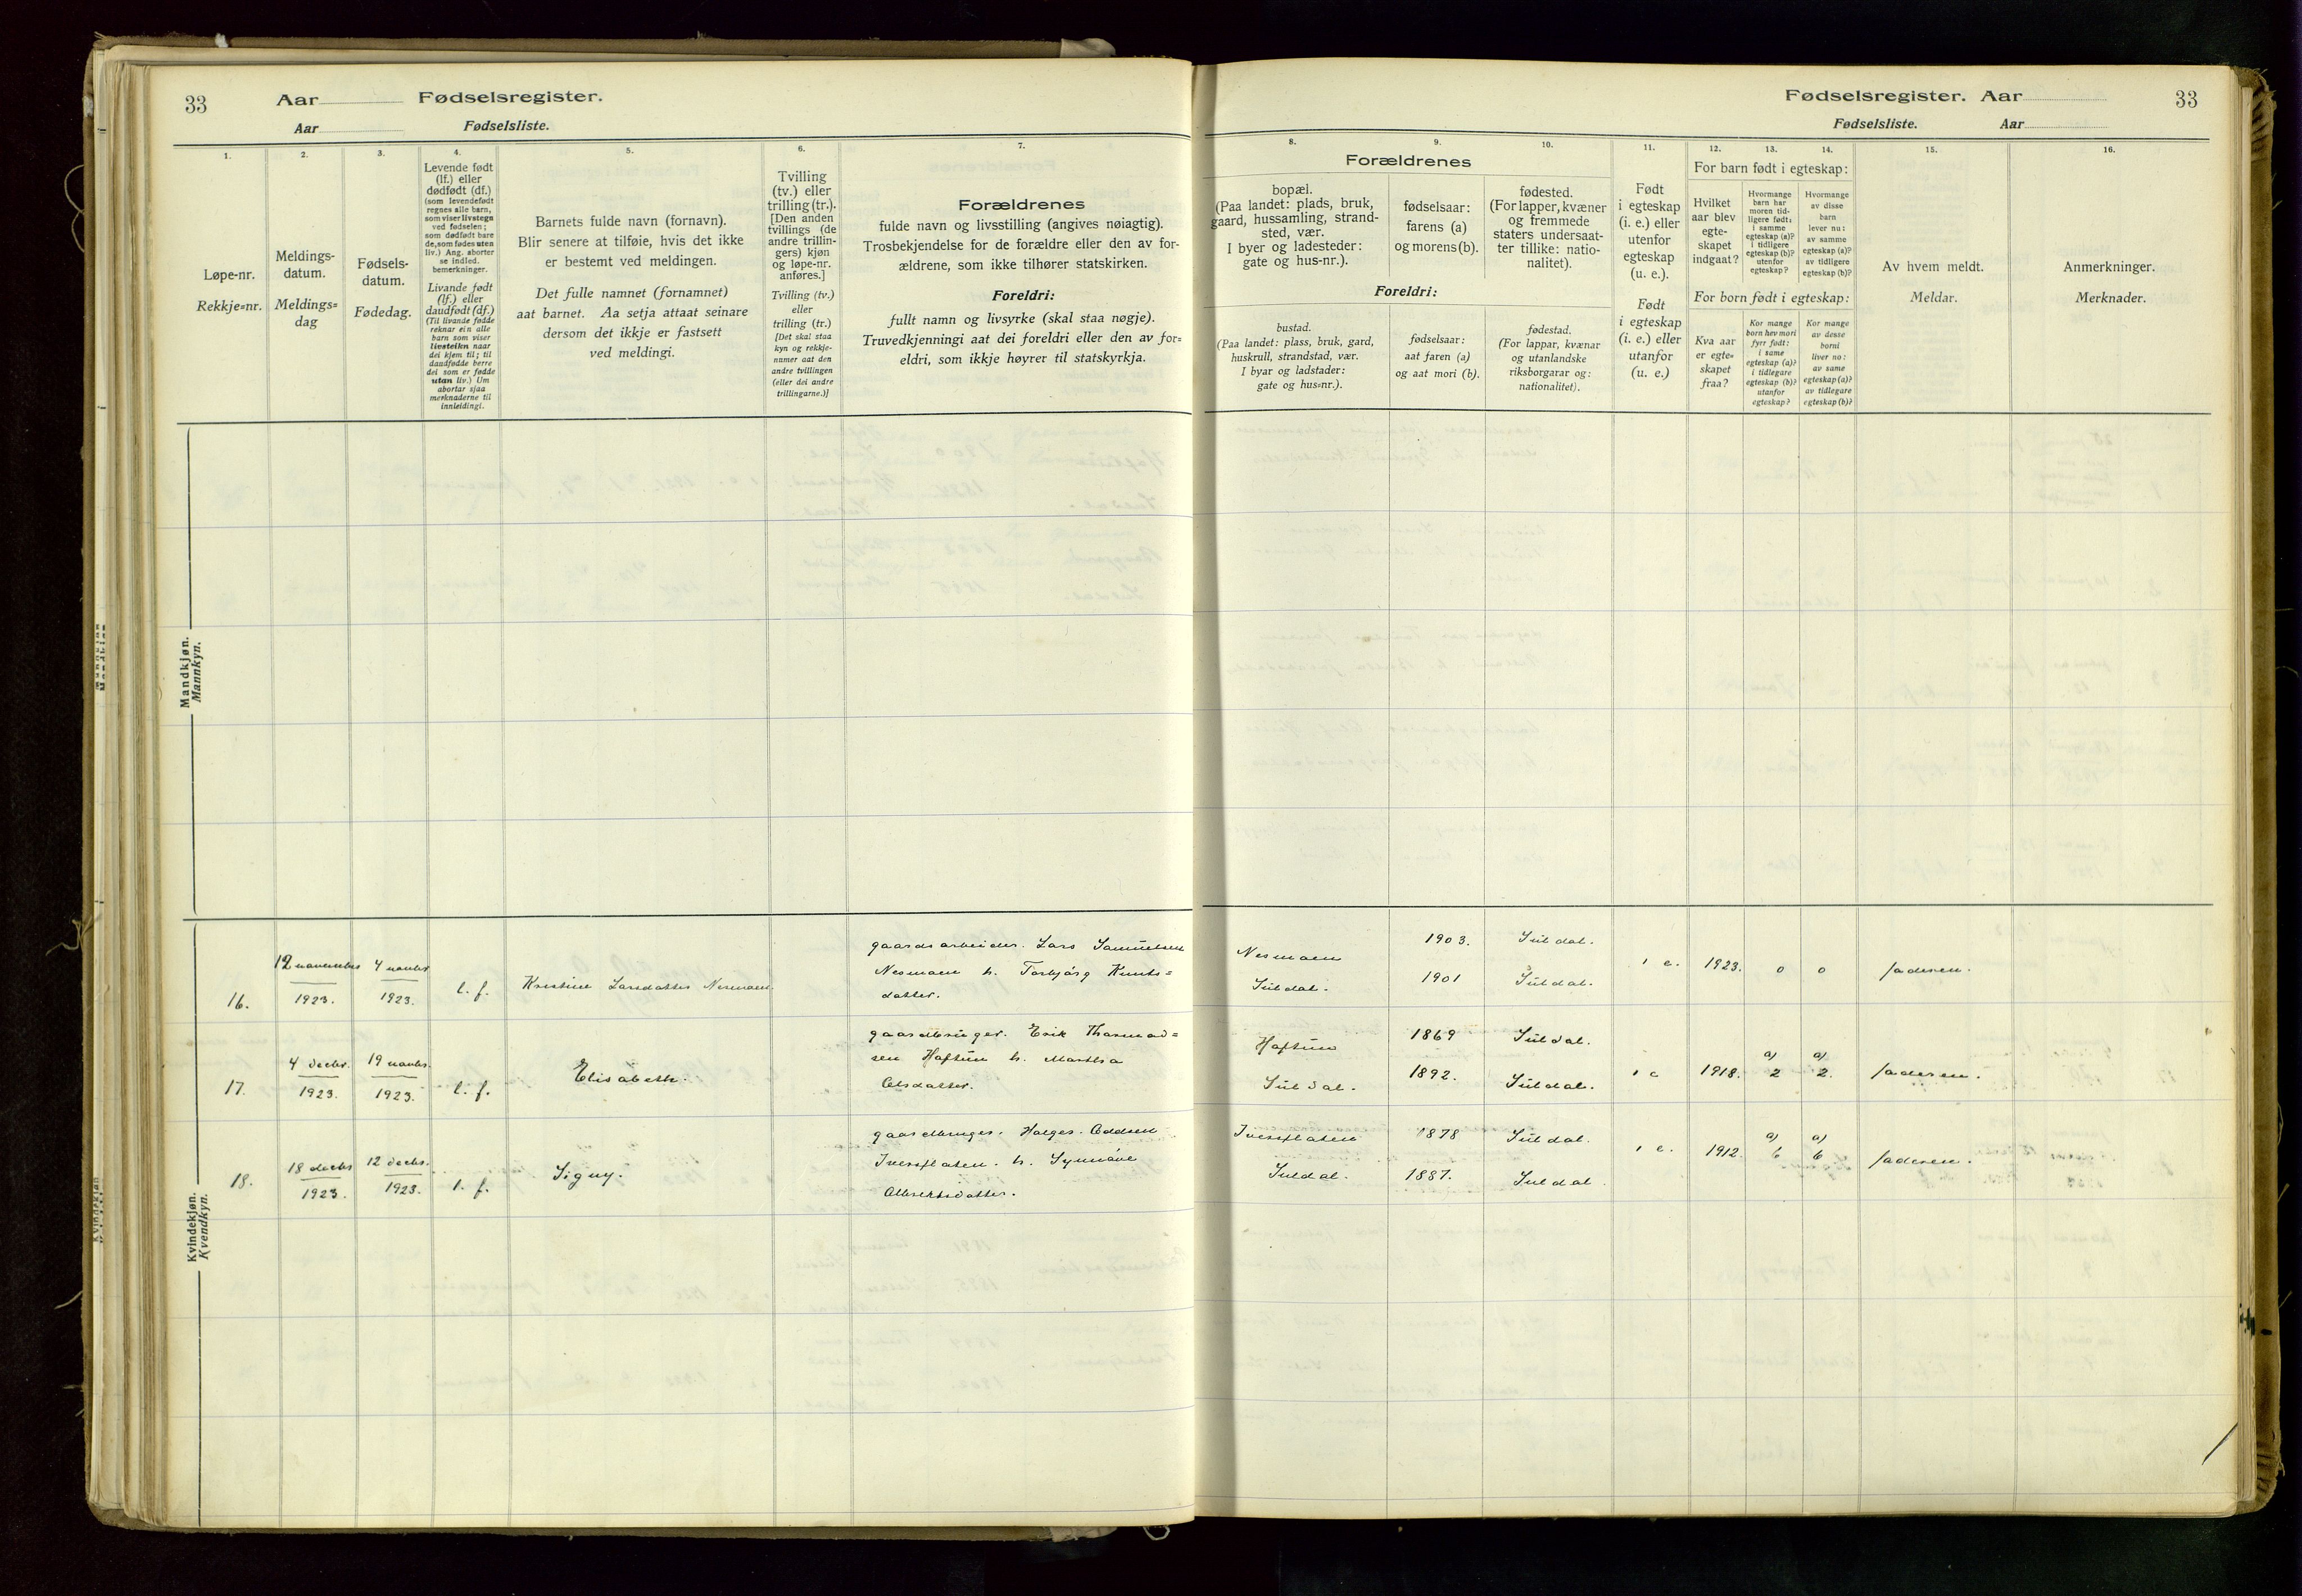 33 Aar Fødselsregister.
Aar Fødselsliste.
1.
2.
3.
4.
5.
6.
7.
Løpe-nr.
Rekkje=nr.
Meldings-
datum.
Meldings=
dag
Fødsels-
datum.
Fødedag.
Levende født
(lf.) eller
dødfødt (df.)
(som levendefødt
regnes alle barn,
som viser livstegn
ved fødselen;
som dødfødt bare
de, som fødes uten
liv.) Ang. aborter
se indled.
bemerkninger.
Livande født
(lf.) eller
daudfødt (df.)
(Til livande fødde
reknar ein alle
barn som viser
livsteikn naar
dei kjem til; til
daudfødde berre
dei som er fødde
utan liv.) Um
abortar sjaa
merknaderne til
innleidingi.
Barnets fulde navn (fornavn).
Blir senere at tilføie, hvis det ikke
er bestemt ved meldingen.
Det fulle namnet (fornamnet)
aat barnet. Aa setja attaat seinare
dersom det ikkje er fastsett
ved meldingi.
Tvilling
(tv.) eller
trilling (tr.).
[Den anden
tvillings (de
andre trillin-
gers) kjøn
og løpe-nr.
anføres.]
Tvilling (tv.)
eller
trilling (tr.)
[Det skal staa
kyn og rekkje-
numer aat den
andre tvillingen
(eller dei andre
trillingarne.)]
Forældrenes
fulde navn og livsstilling (angives nøiagtig).
Trosbekjendelse for de forældre eller den av for-
ældrene, som ikke tilhører statskirken.
Foreldri:
fullt namn og livsyrke (skal staa nøgje).
Truvedkjenningi aat dei foreldri eller den av for=
eldri, som ikkje høyrer til statskyrkja.
Mandkjøn.
Mannkyn.
Kvindekjøn.
Kvendkyn.
16.
12 november
1923.
4 novbr
1923.
l. f.
Kristine Larsdatter Nesmoen.
gaardsarbeider. Lars Samuelsen
Nesmoen h. Torbjørg Knuts=
datter.
17.
4 decbr.
1923.
19 novbr.
1923.
l. f.
Elisabeth.
gaardbruger. Erik Thormod=
sen Haftun h. Martha
Olsdatter.
18.
18 decbr
1923.
12 decbr.
1923.
l. f.
Signy.
gaardbruger. Holger. Oddsen
Ivesflaten. h. Synnøve
Albrektsdatter.
Fødselsregister. Aar 33
Fødselsliste. Aar
8.
9.
10.
11.
12.
13.
14.
15.
16.
Forældrenes
bopæl.
(Paa landet: plads, bruk,
gaard, hussamling, strand-
sted, vær.
I byer og ladesteder:
gate og hus-nr.).
fødselsaar:
farens (a)
og morens (b).
fødested.
(For lapper, kvæner
og fremmede
staters undersaat-
ter tillike: natio-
nalitet).
Foreldri:
bustad.
(Paa landet: plass, bruk, gard,
huskrull, strandstad, vær.
I byar og ladstader:
gate og hus=nr.).
fødselsaar:
aat faren (a)
og aat mori (b).
fødestad.
(For lappar, kvænar
og utanlandske
riksborgarar og:
nationalitet).
Født
i egteskap
(i. e.) eller
utenfor
egteskap
(u. e.).
Født
i egteskap
(i. e.) eller
utanfor
(u. e.)
For barn født i egteskap:
Hvilket
aar blev
egte-
skapet
indgaat?
Hvormange
barn har
moren tid-
ligere født:
i samme
egteskap (a)?
i tidligere
egteskap (b)?
utenfor
egteskap?
Hvormange
av disse
barn
lever nu:
av samme
egteskap (a)?
av tidligere
egteskap (b)?
For born født i egteskap:
Kva aar
er egte=
skapet
fraa?
Kor mange
born hev mori
fyrr født:
i same
egteskap (a)?
i tidlegare
egteskap (b)?
utanfor
egteskap?
Kor mange
av desse
borni
liver no:
av same
egteskap (a)?
av tidlegare
egteskap (b)?
Av hvem meldt.
Meldar.
Anmerkninger.
Merknader.
Nesmoen
Suldal.
1903.
1901
Suldal.
Suldal.
i e.
1923.
0
0
faderen.
Haftun
Suldal.
1869
1892.
Suldal.
Suldal.
i e
1918.
a)
2
a)
2.
faderen.
Ivesflaten
Suldal.
1878
1887.
Suldal.
Suldal
i e.
1912.
a)
6
a)
6
faderen.